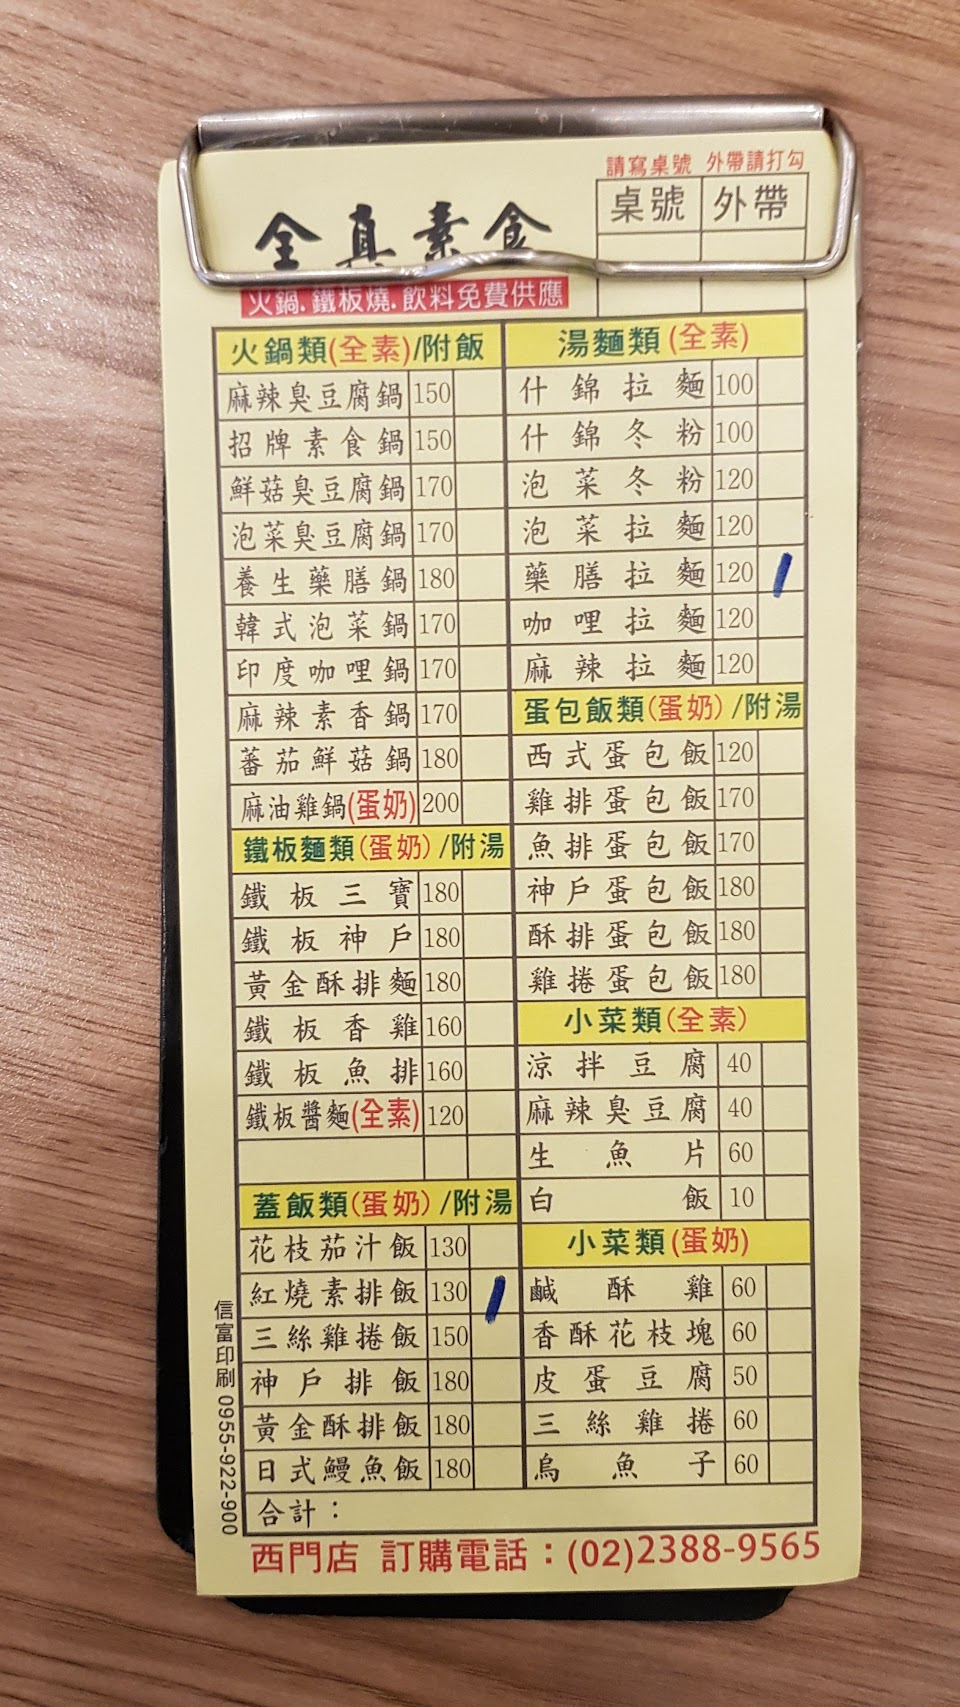 請寫桌號 外帶請打勾
桌號 外帶
全真素食
火鍋.鐵板燒.飲料免費供應
火鍋類(全素)/附飯
麻辣臭豆腐鍋 150
招牌素食鍋 150
鮮菇臭豆腐鍋 170
泡菜臭豆腐鍋 170
養生藥膳鍋 180
韓式泡菜鍋 170
印度咖哩鍋 170
麻辣素香鍋 170
蕃茄鮮菇鍋 180
麻油雞鍋(蛋奶) 200
鐵板麵類(蛋奶)/附湯
鐵板三寶 180
鐵板神戶 180
黃金酥排麵 180
鐵板香雞 160
鐵板魚排 160
鐵板醬麵(全素) 120
蓋飯類(蛋奶)/附湯
花枝茄汁飯 130
紅燒素排飯 130
三絲雞捲飯 150
神戶排飯 180
黃金酥排飯 180
日式鰻魚飯 180
湯麵類(全素)
什錦拉麵 100
什錦冬粉 100
泡菜冬粉 120
泡菜拉麵 120
藥膳拉麵 120
咖哩拉麵 120
麻辣拉麵 120
蛋包飯類(蛋奶)/附湯
西式蛋包飯 120
雞排蛋包飯 170
魚排蛋包飯 170
神戶蛋包飯 180
酥排蛋包飯 180
雞捲蛋包飯 180
小菜類(全素)
涼拌豆腐 40
麻辣臭豆腐 40
生魚片 60
白飯 10
小菜類(蛋奶)
鹹酥雞 60
香酥花枝塊 60
皮蛋豆腐 50
三絲雞捲 60
烏魚子 60
合計：
西門店 訂購電話：(02)2388-9565
信富印刷 0955-922-900